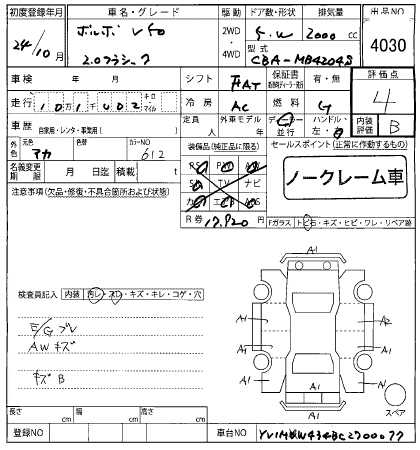 初度登録年月 車名・グレード 駆動 ドア数・形状 排気量 出品NO
24/10月 ボルボ V50 2WD 5.W 2000cc 4030
2.0クラシック 4WD 型式 CBA-MB4204S
車検 年 月 シフト FAT 保証書 有・無 評価点
走行 10万1002 キロ・マイル 冷房 AC 燃料 G 4
車歴 自家用・レンタ・事業用( ) 定員 人 外車モデル 年 ディーラー・並行 ハンドル 左・右 内装評価 B
外色 元色 アカ 色替 カラーNO 612 装備品(純正品に限る) セールスポイント(正常に作動するもの)
名義変更期限 月 日迄 積載 t ノークレーム車
注意事項(欠品・修復・不具合箇所および状態)
PS PW SR TV ナビ カワ エアB ABS
R券 17.920 Fガラス トビ石・キズ・ヒビ・ワレ・リペア跡
A1
検査員記入 内装 汚レ・スレ・キズ・キレ・コゲ・穴
A1 A1 A2
E/Gブレ
AWキズ
A1 A1 A1 A1
キズB
A1 スペア
長さ cm 幅 cm 高さ cm
登録NO 車台NO YV1MW434BC2700077